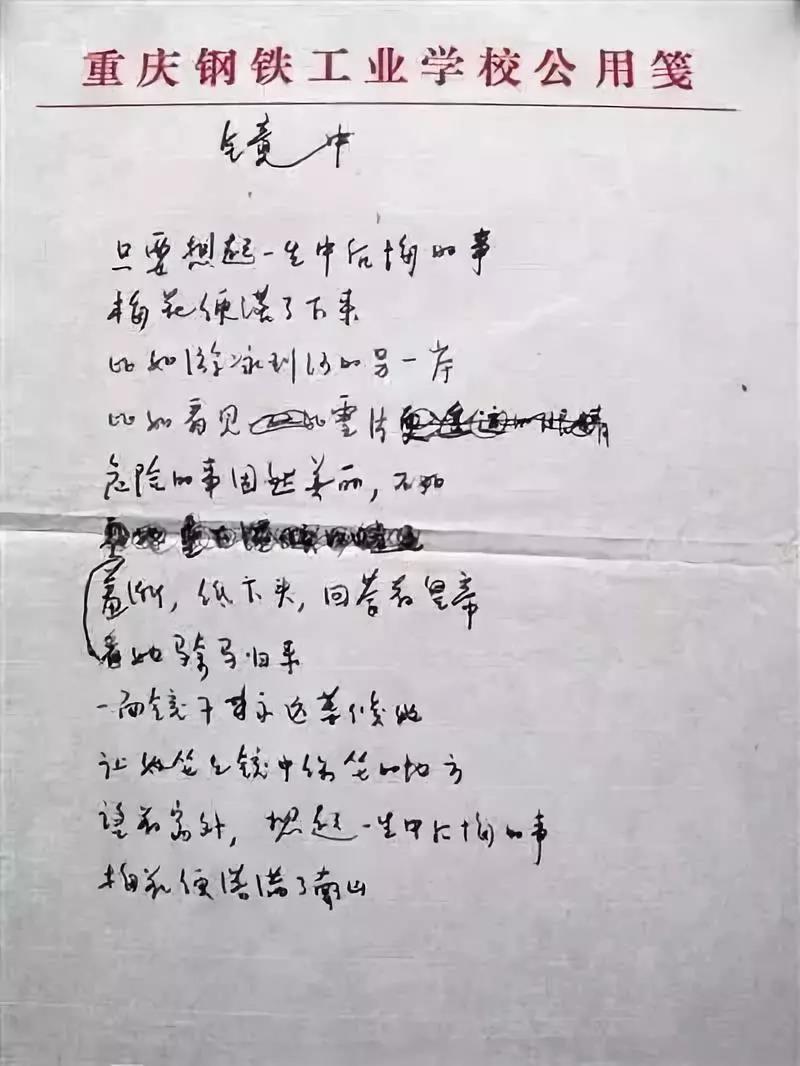 重庆钢铁工业学校公用笺
镜中
只要想起一生中后悔的事
梅花便落了下来
比如游泳到河的另一岸
比如看见雪片
危险的事固然美丽，不如
羞惭，低下头，回答着皇帝
看她骑马归来
一面镜子永远等候她
让她坐镜中坐的地方
望着窗外，想起一生中后悔的事
梅花便落满了南山